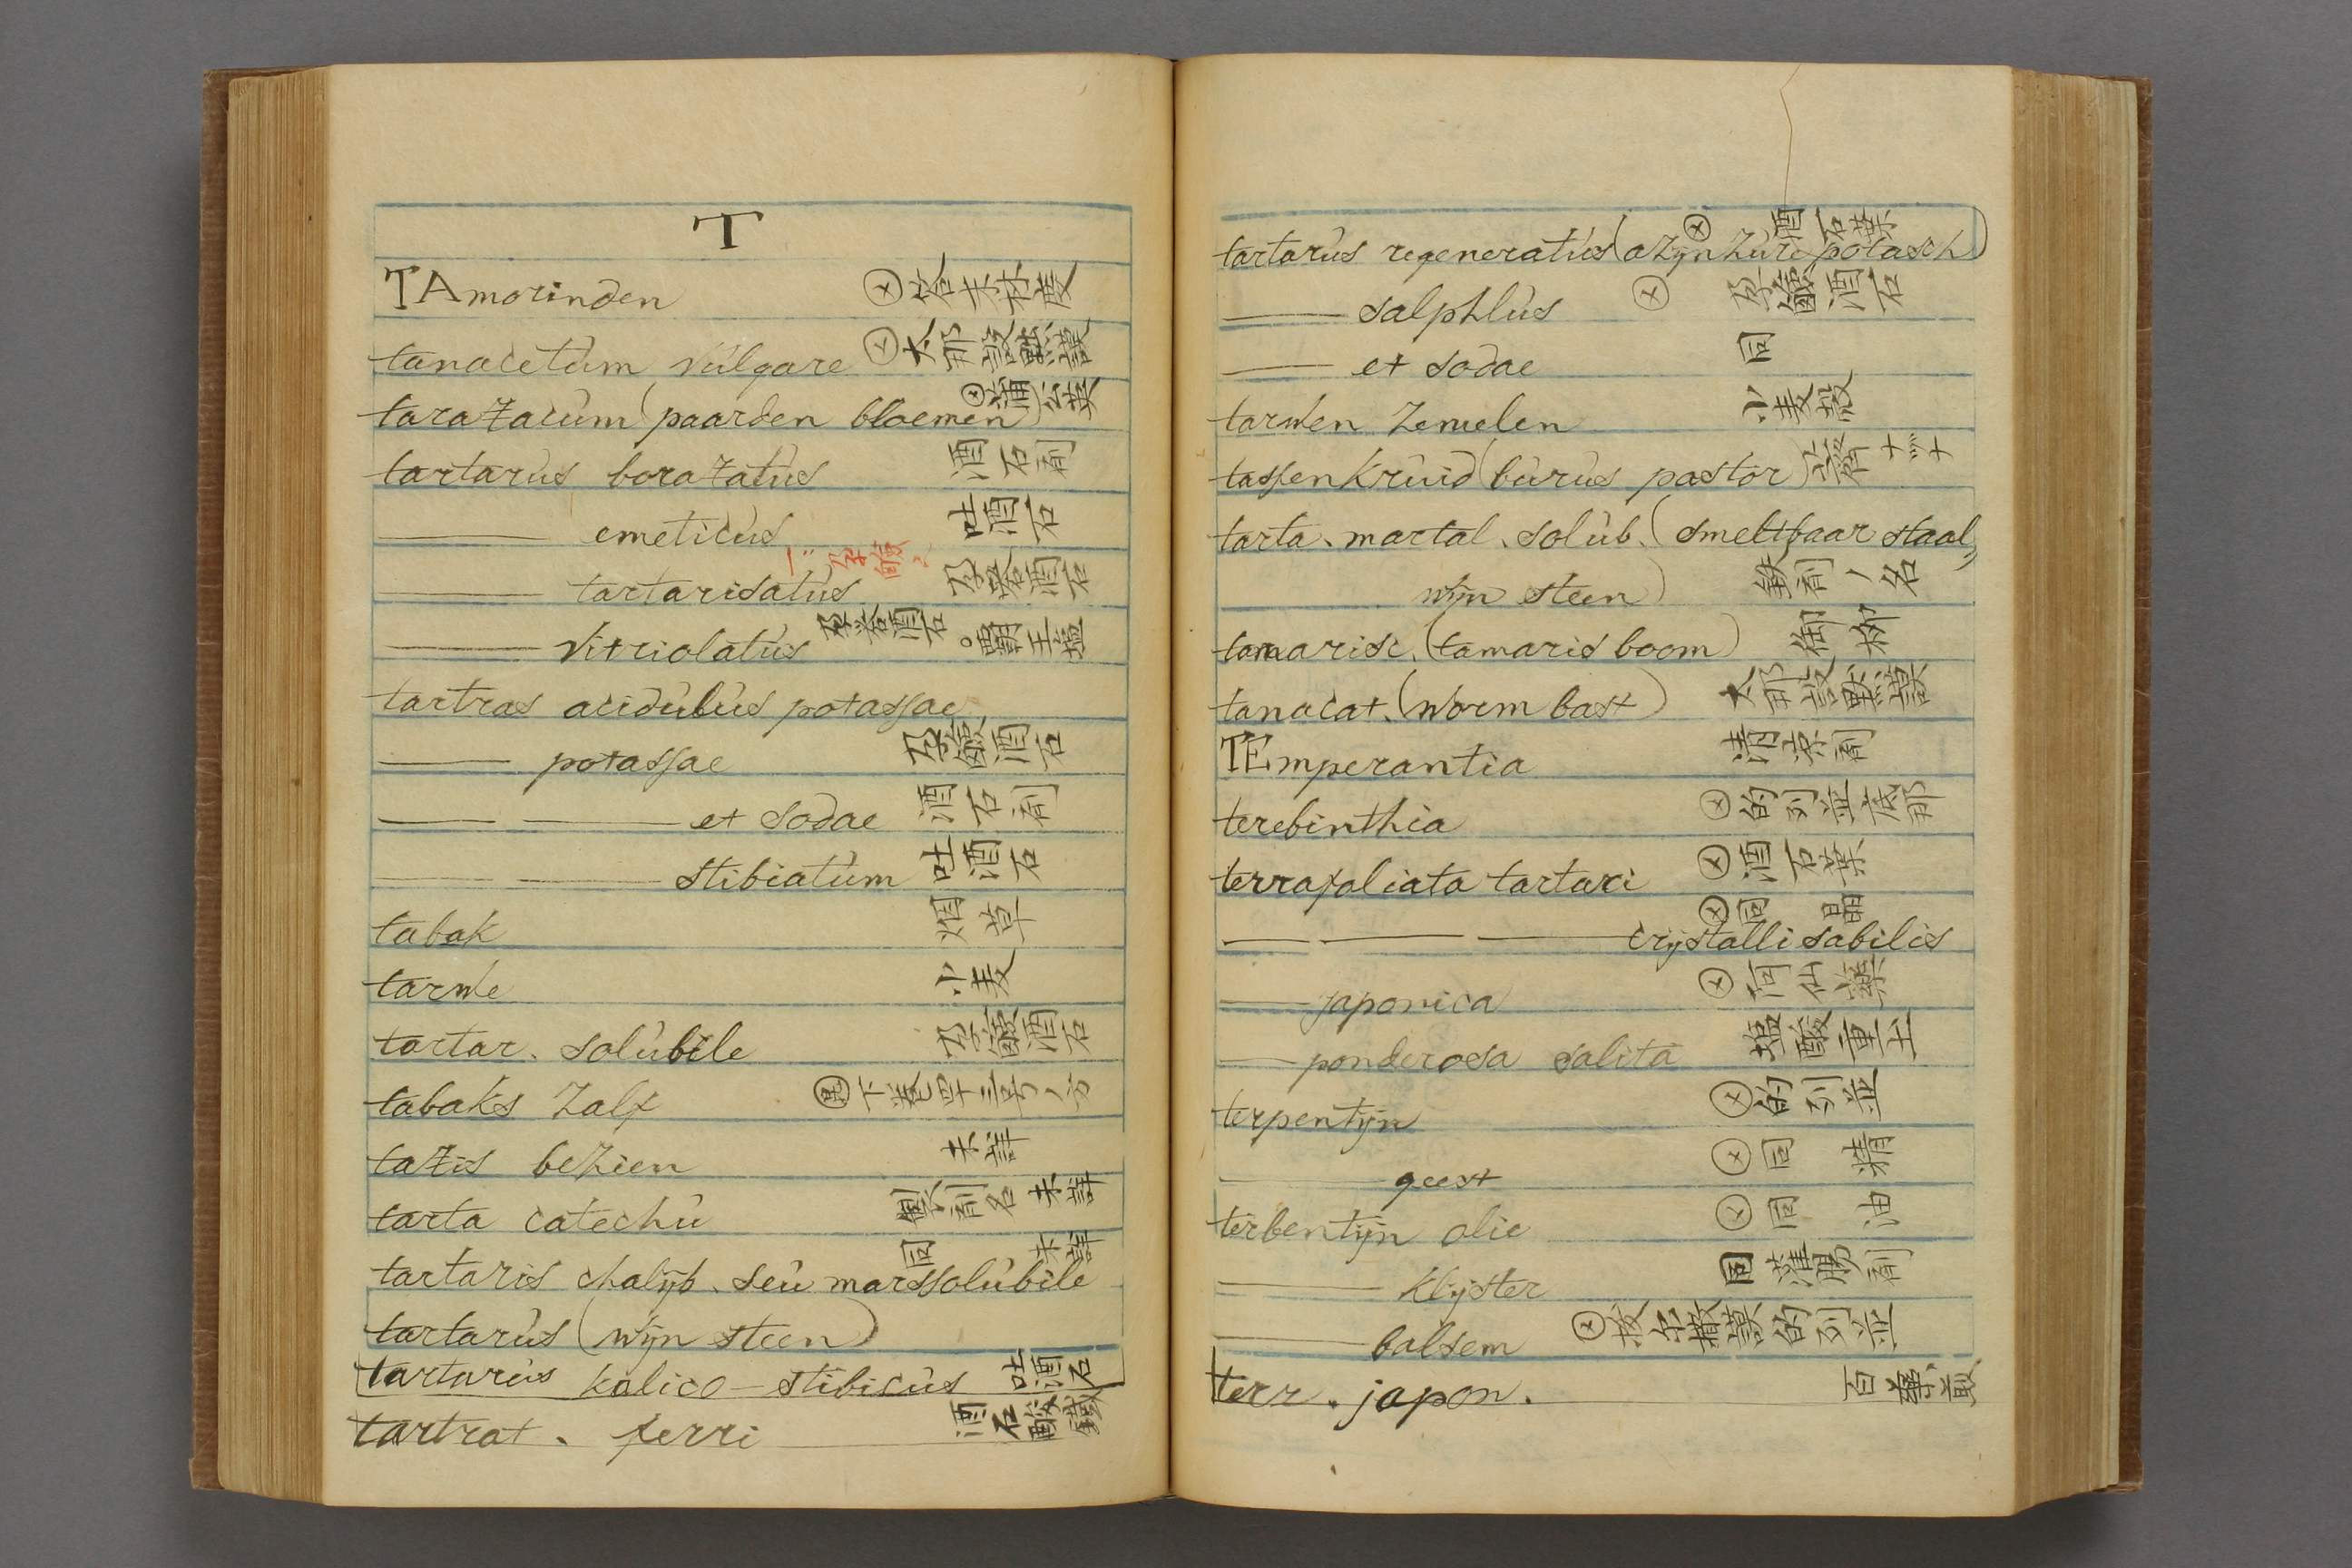 T
TAmorinden
tanacetum vulgare 太那設黙謨
taraxacum (paarden bloemen) 蒲公英
tartarus boraxatus 酒石剤
—— emeticus 吐酒石
—— tartarisatus 酒石
—— vitriolatus 酒石 覇王塩
tartras acidubus potassae
—— potassae 酒石
—— —— et sodae 酒石剤
—— —— stibiatum 吐酒石
tabak 烟草
tarwe 小麦
tartar. solubile 酒石
tabaks zalf 下巻四十三号ノ方
taxis bezien 未詳
tarta catechu 製剤名 未詳
tartaris chalijb. seu marssolubile 同 未詳
tartarus (wijn steen)
tartarus kalico-stibicus 吐酒石
tartrat. ferri 酒石酸鐵
tartarus regeneratus (azijnzure potasch) 酒石葉
—— salphlus 酒石
—— et sodae 同
tarwen zemelen 小麦
tassenkruid (burus pastor) 薺 ナヅナ
tarta. martal. solub. (smeltbaar staal,,
wijn steen) 鉄剤ノ名
tamarisc. (tamaris boom) 御柳
tanacat. (worm bast) 太那設黙謨
TEmperantia 清凉剤
terebinthia 的列並底那
terrafoliata tartari 酒石葉
—— —— —— crijstallisabilis 同 晶
—— japonica 阿仙薬
—— ponderosa salita 塩酸重土
terpentijn 的列並
—— geest 同 精
terbentijn olie 同 油
—— klijster 同 灌腸剤
—— balsem 撒謨的列並
terr. japon. 百薬煎